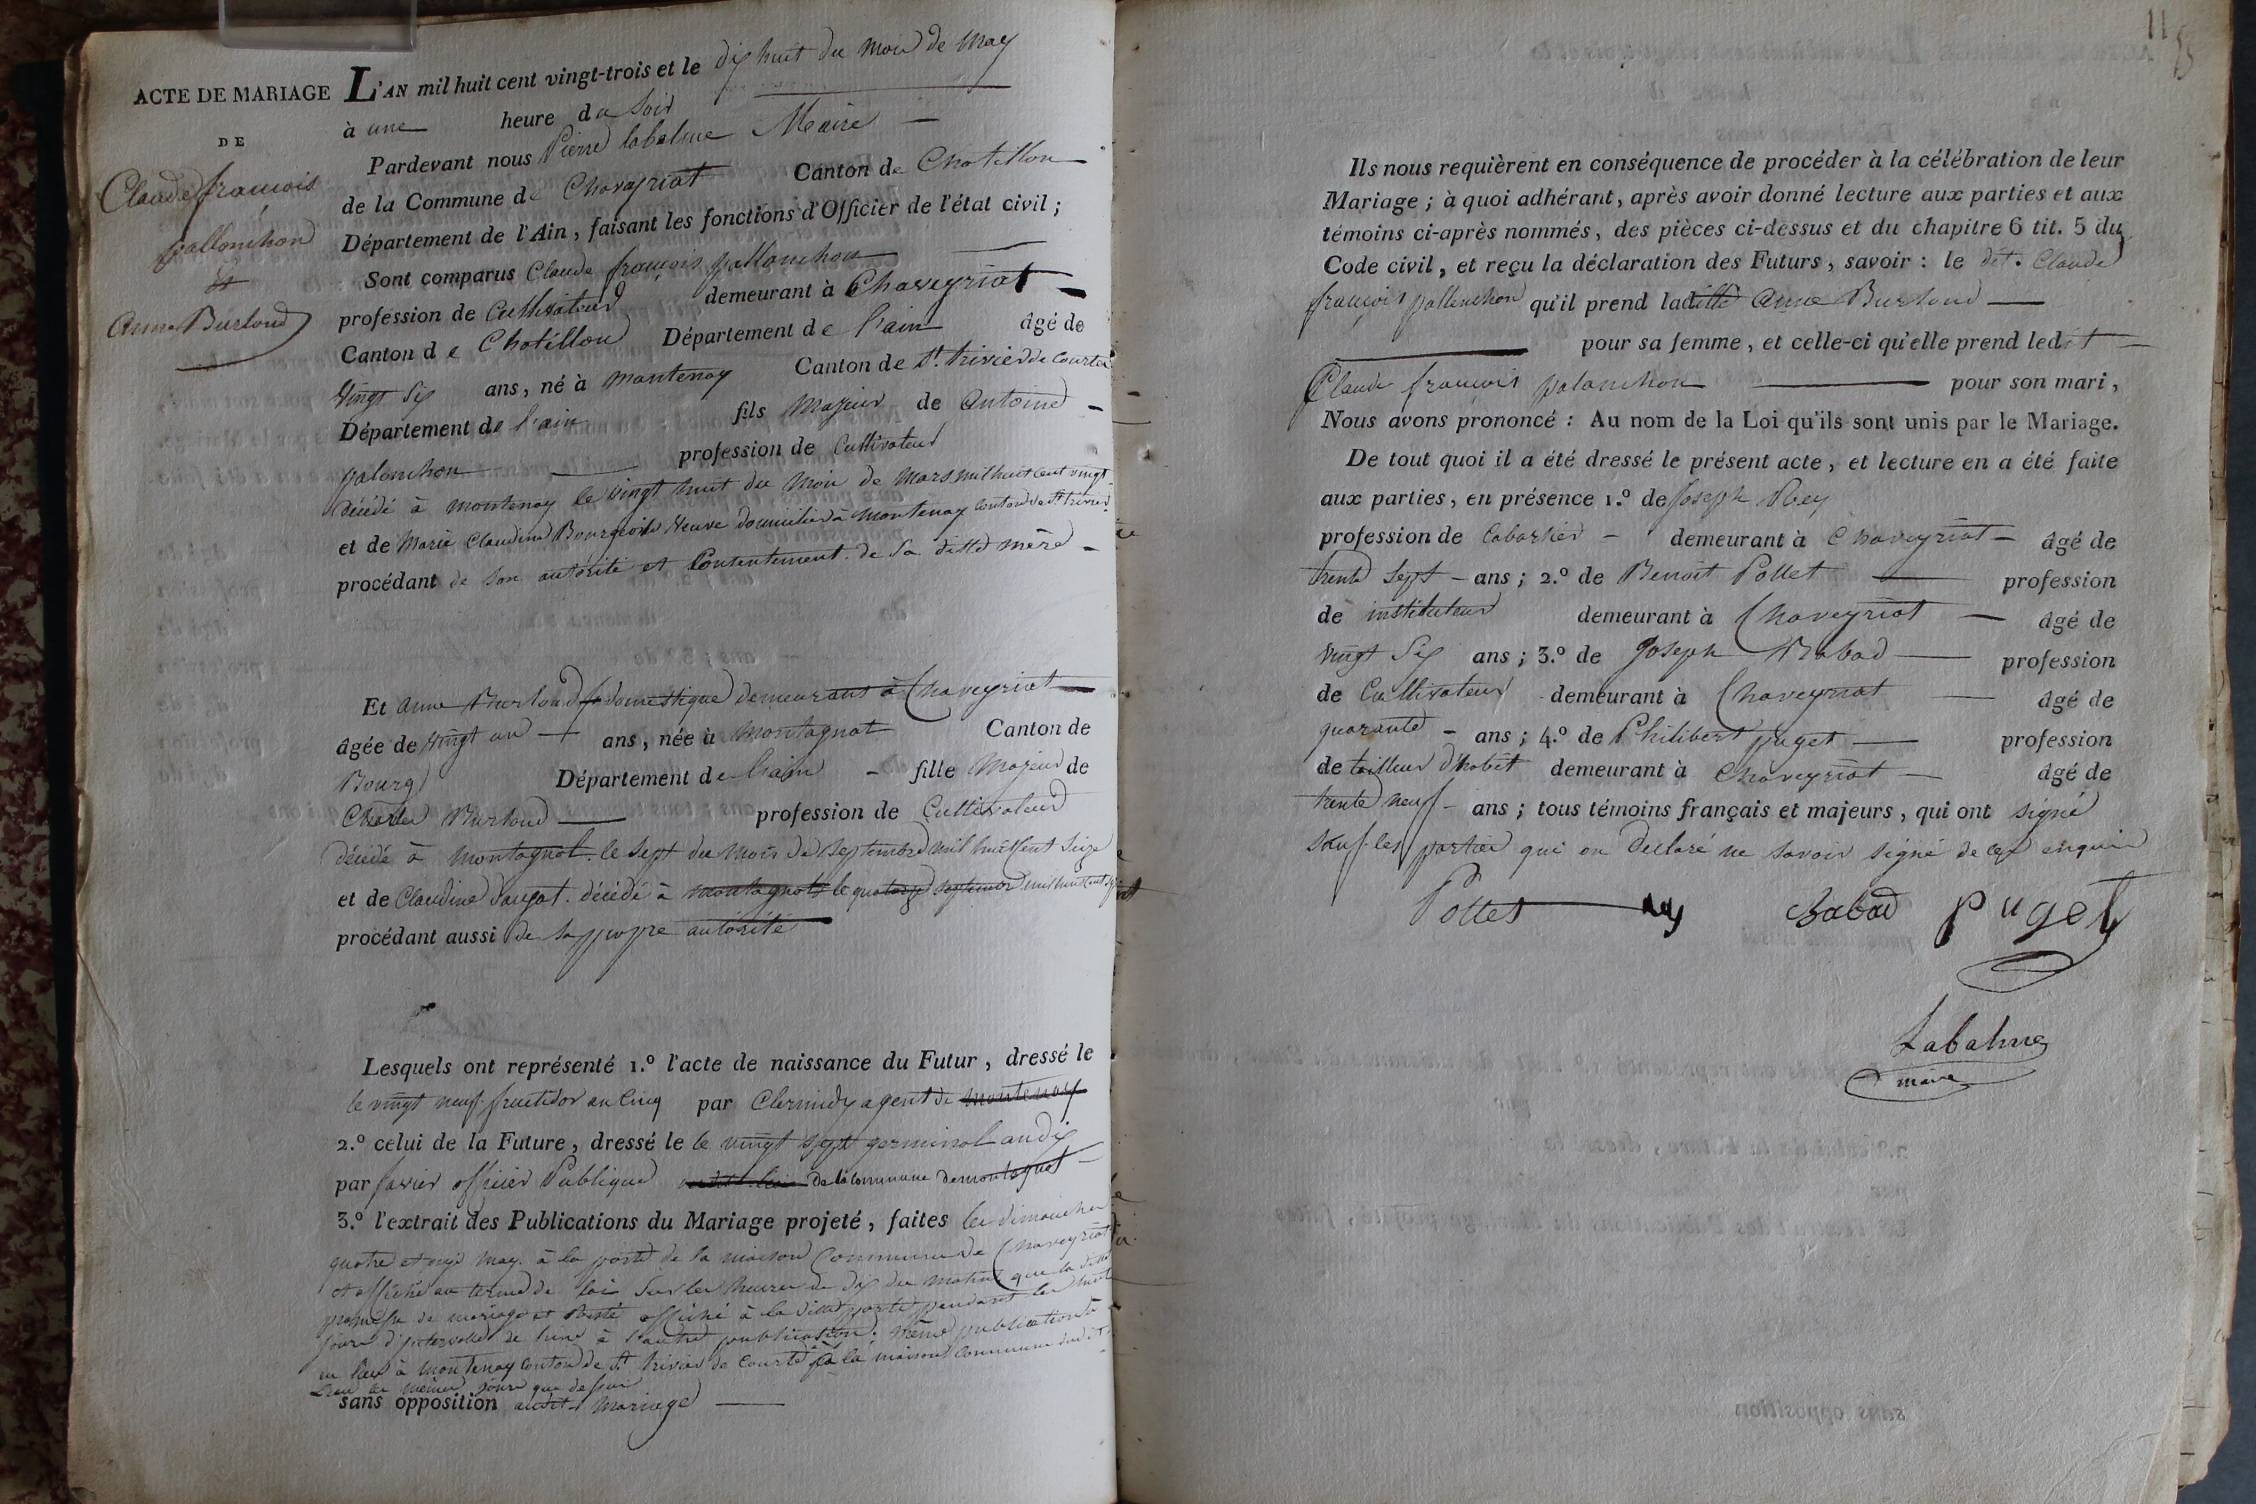 ACTE DE MARIAGE
DE
Claude françois
pallonchon
Et
Anne Burtoud
L'AN mil huit cent vingt-trois et le dix huit du mois de May
à une heure du soir
Pardevant nous Pierre labalme Maire
de la Commune de Chaveyriat Canton de Chatillon
Département de l'Ain, faisant les fonctions d'Officier de l'état civil ;
Sont comparus Claude françois pallonchon
profession de Cultivateur demeurant à Chaveyriat
Canton de Chatillon Département de l'ain âgé de
vingt six ans, né à montenay Canton de St. trivier de Courtes
Département de l'ain fils Majeur de antoine
palonchon profession de Cultivateur
décédé à montenay le vingt huit du mois de mars mil huit cent vingt
et de Marie Claudine Bourgeois veuve domiciliée à montenay Canton de St. trivier
procédant de son autorité et Consentement de sa ditte mère
Et anne Burtoud domestique demeurant à Chaveyriat
âgée de vingt un ans, née à montagnat Canton de
Bourg Département de l'ain fille Majeur de
Charles Burtoud profession de Cultivateur
décédé à montagnat le sept du mois de septembre mil huit Cent seize
et de Claudine décédé à montagnat le quatorze septembre mil huit cent
procédant aussi de sa propre autorité
Lesquels ont représenté 1.° l'acte de naissance du Futur, dressé le
le vingt neuf fructidor an Cinq par Clermidy agent de montenay
2.° celui de la Future, dressé le le vingt sept germinal an dix
par favier officier Publique de la commune de montagnat
3.° l'extrait des Publications du Mariage projeté, faites les dimanches
quatre et onze may à la porte de la maison Commune de Chaveyriat
et affiché au terme de loi sur les heures de dix du matin que la ditte
promesse de mariage et resté affiché à la ditte porte pendant les huit
jours d'intervalle de l'une à l'autre publication. même publication à
eu lieu à montenay canton de St. trivier de Courtes à la maison Commune dudit
lieu les mêmes jours que dessus
sans opposition audit Mariage
11
Ils nous requièrent en conséquence de procéder à la célébration de leur
Mariage ; à quoi adhérant, après avoir donné lecture aux parties et aux
témoins ci-après nommés, des pièces ci-dessus et du chapitre 6 tit. 5 du
Code civil, et reçu la déclaration des Futurs, savoir : le dit. Claude
françois pallonchon qu'il prend ladite anne Burtoud
pour sa femme, et celle-ci qu'elle prend ledit
Claude françois palonchon pour son mari,
Nous avons prononcé : Au nom de la Loi qu'ils sont unis par le Mariage.
De tout quoi il a été dressé le présent acte, et lecture en a été faite
aux parties, en présence 1.° de Joseph Rey
profession de Cabartier demeurant à Chaveyriat âgé de
trente sept ans ; 2.° de Benoit Pollet profession
de instituteur demeurant à Chaveyriat âgé de
vingt six ans ; 3.° de Joseph Rabad profession
de Cultivateur demeurant à Chaveyriat âgé de
quarante ans ; 4.° de Philibert puget profession
de tailleur d'habit demeurant à Chaveyriat âgé de
trente neuf ans ; tous témoins français et majeurs, qui ont signé
sauf les parties qui on Declaré ne savoir signé de ce enquis
Pollet Rey Babad puget
Labalme
maire